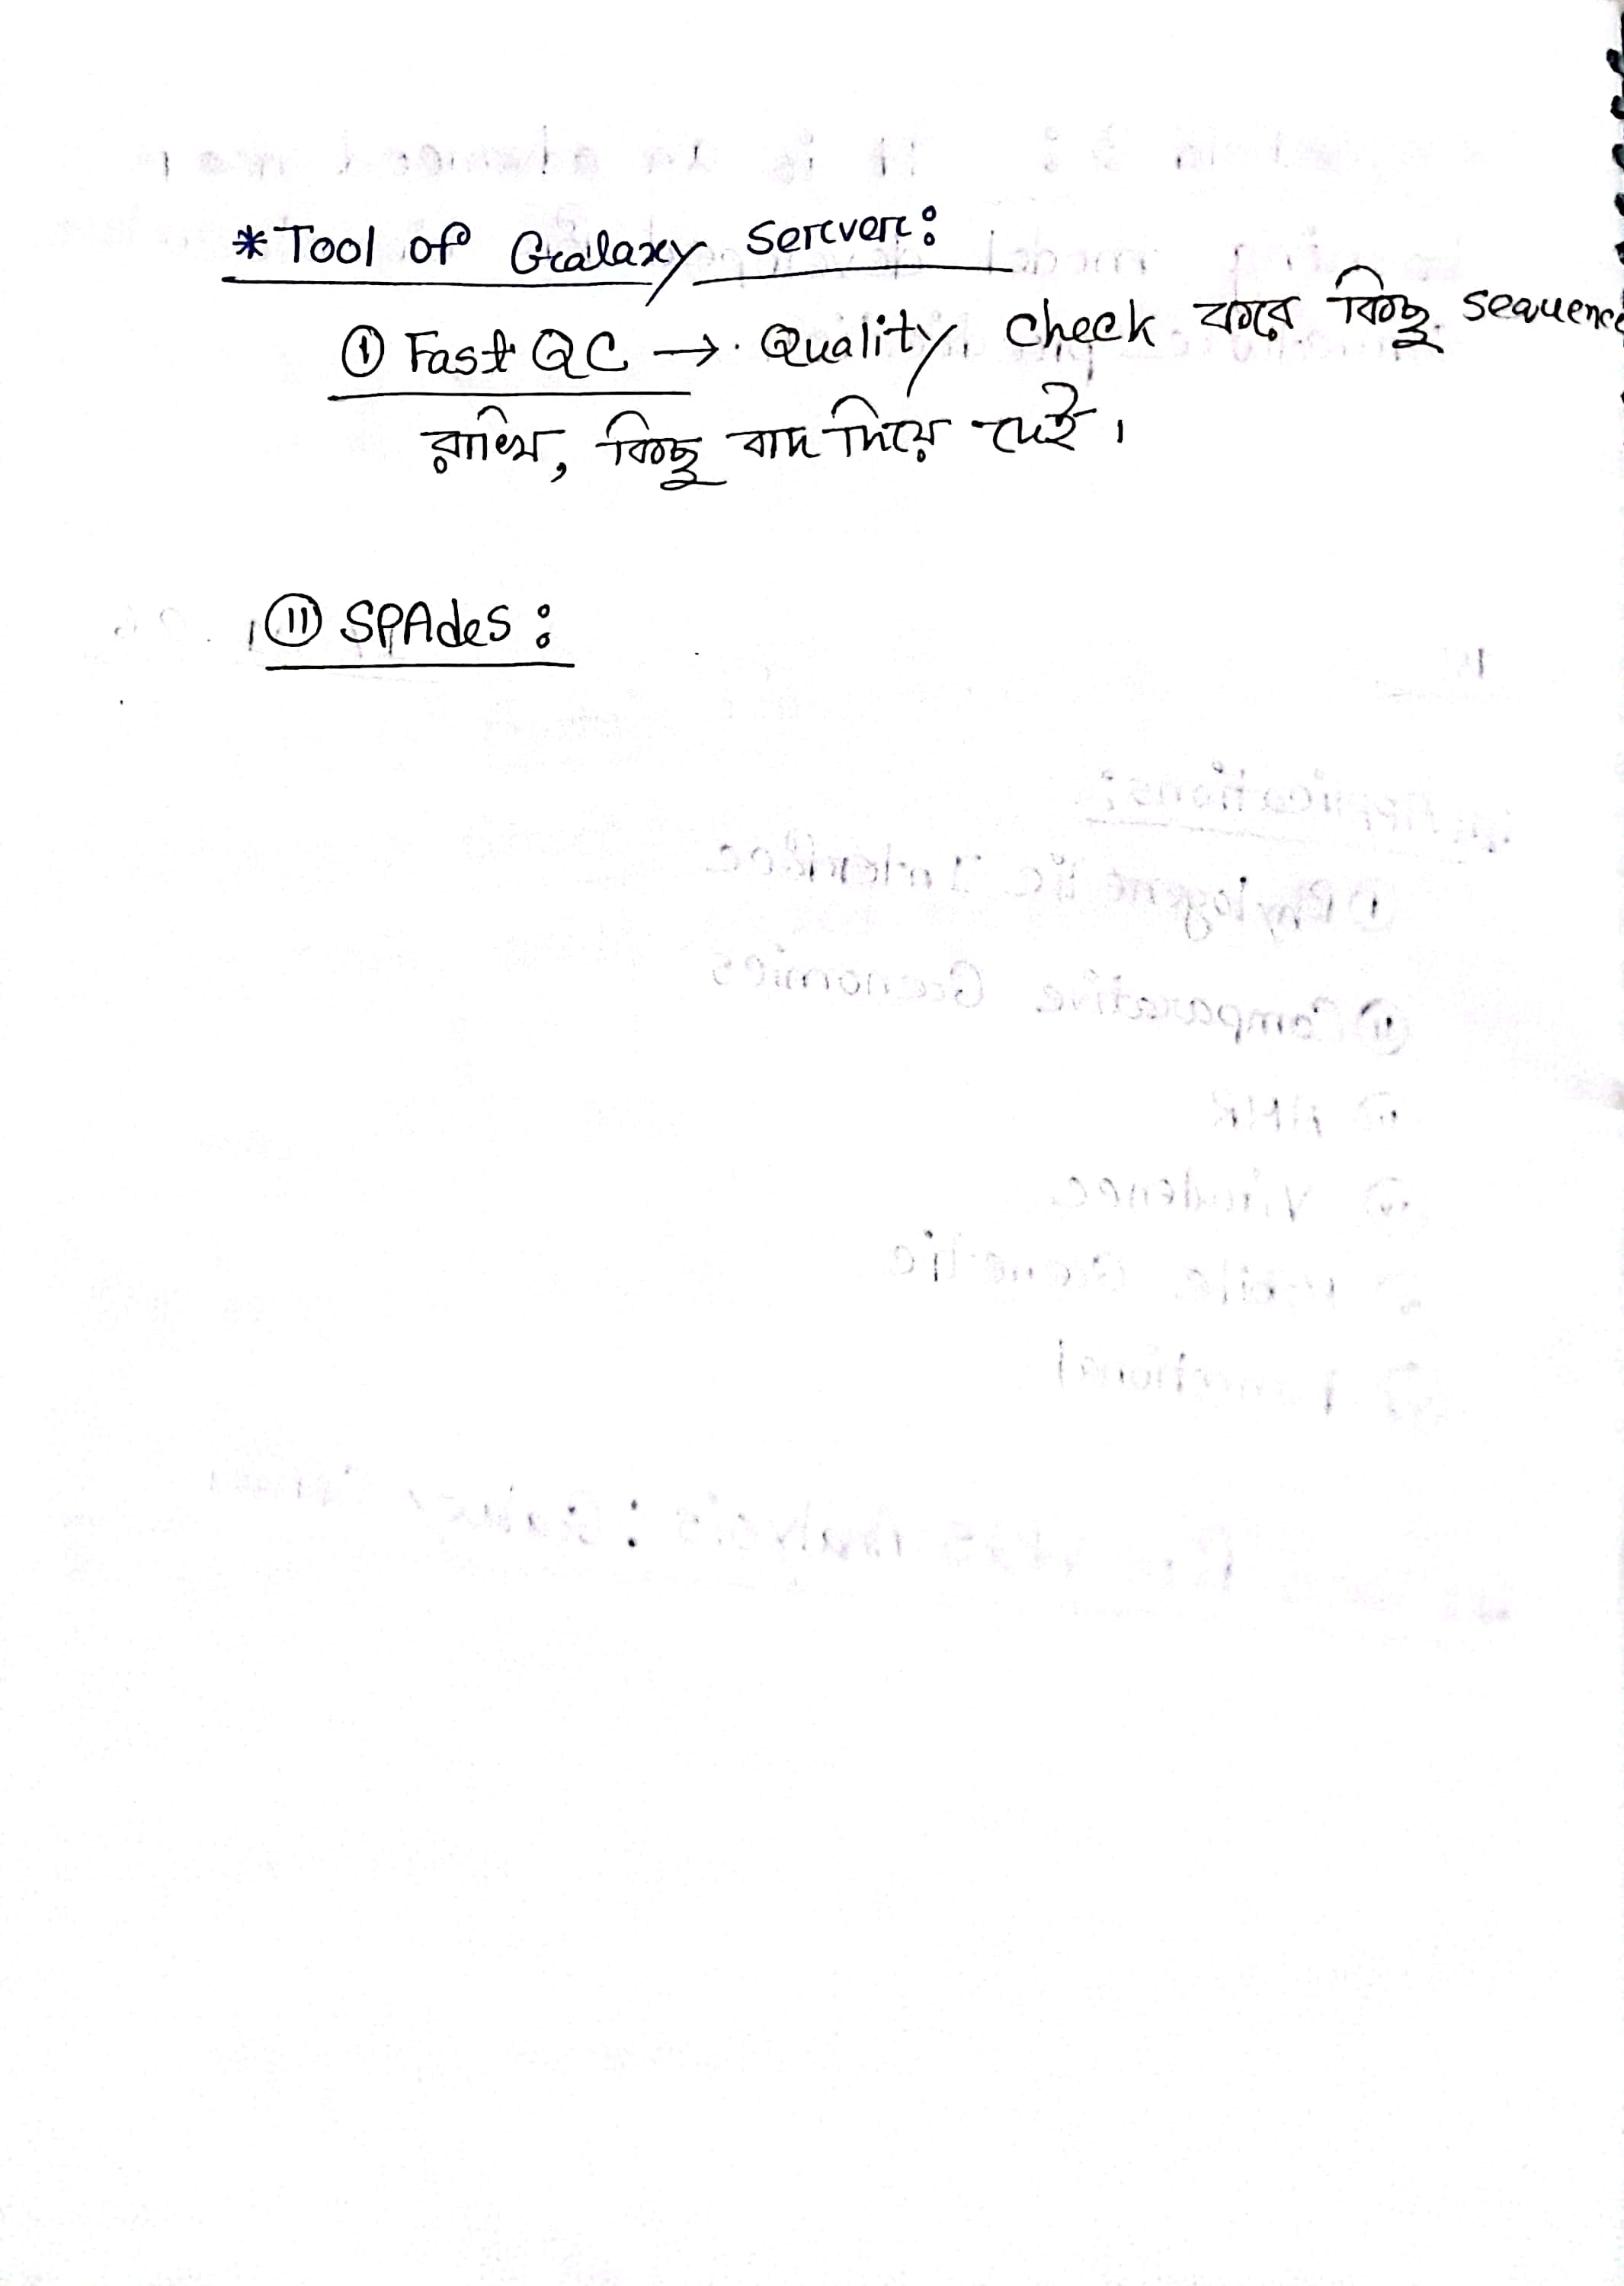 *Tool of Galaxy server:
① Fast QC → Quality check করে কিছু sequence
রাখি, কিছু বাদ দিয়ে দেই।
⑪ SPAdes: